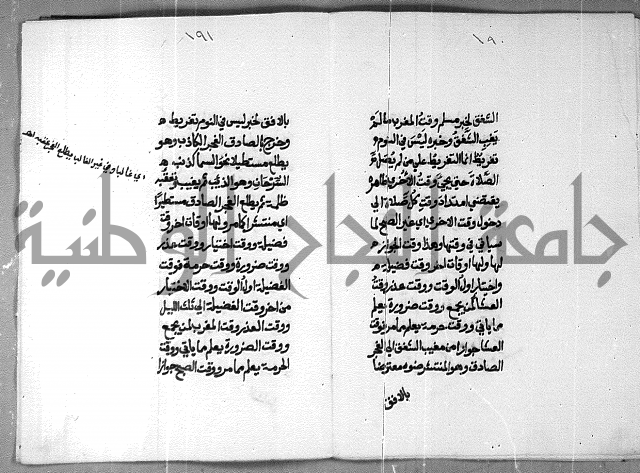 ١٩٠
الشفق لخبر مسلم وقت المغرب ما لم
يغب الشفق وخبره ليس في النوم
تفريط انما التفريط على من لم يصل
الصلاة حتى يجي وقت الاخرى ظاهره
يقتضي امتداد وقت كل صلاة الى
دخول وقت الاخرى اي غير الصبح لما
سياتي في وقتها وهذا وقت الجواز
لها ولها اوقات اخر وقت فضيلة
واختيار اول الوقت ووقت عذر وقت
العشا لمن يجمع ووقت ضرورة يعلم
مما ياتي ووقت حرمة يعلم مما مر ووقت
العشا جوازا من مغيب الشفق الى الفجر
الصادق وهو المنتشر ضوءه معترضا
بالافق
١٩١
بالافق لخبر ليس في النوم تفريط
وخرج بالصادق الفجر الكاذب وهو
يطلع مستطيلا نحو السما كذنب
السرحان وهو الذئب ثم يغيب وتعقبه
ظلمة ثم يطلع الفجر الصادق مستطيرا
اي منتشرا كما مر ولها اوقات اخر وقت
فضيلة ووقت اختيار ووقت عذر
ووقت ضرورة ووقت حرمة فوقت
الفضيلة اول الوقت ووقت الاختيار
من اخر وقت الفضيلة الى ثلث الليل
ووقت العذر وقت المغرب لمن يجمع
ووقت الضرورة يعلم مما ياتي ووقت
الحرمة يعلم مما مر ووقت الصبح جوازا
اي غالبا وفي غير الغالب يطلع الفجر عقبه اهـ
جامعة النجاح الوطنية